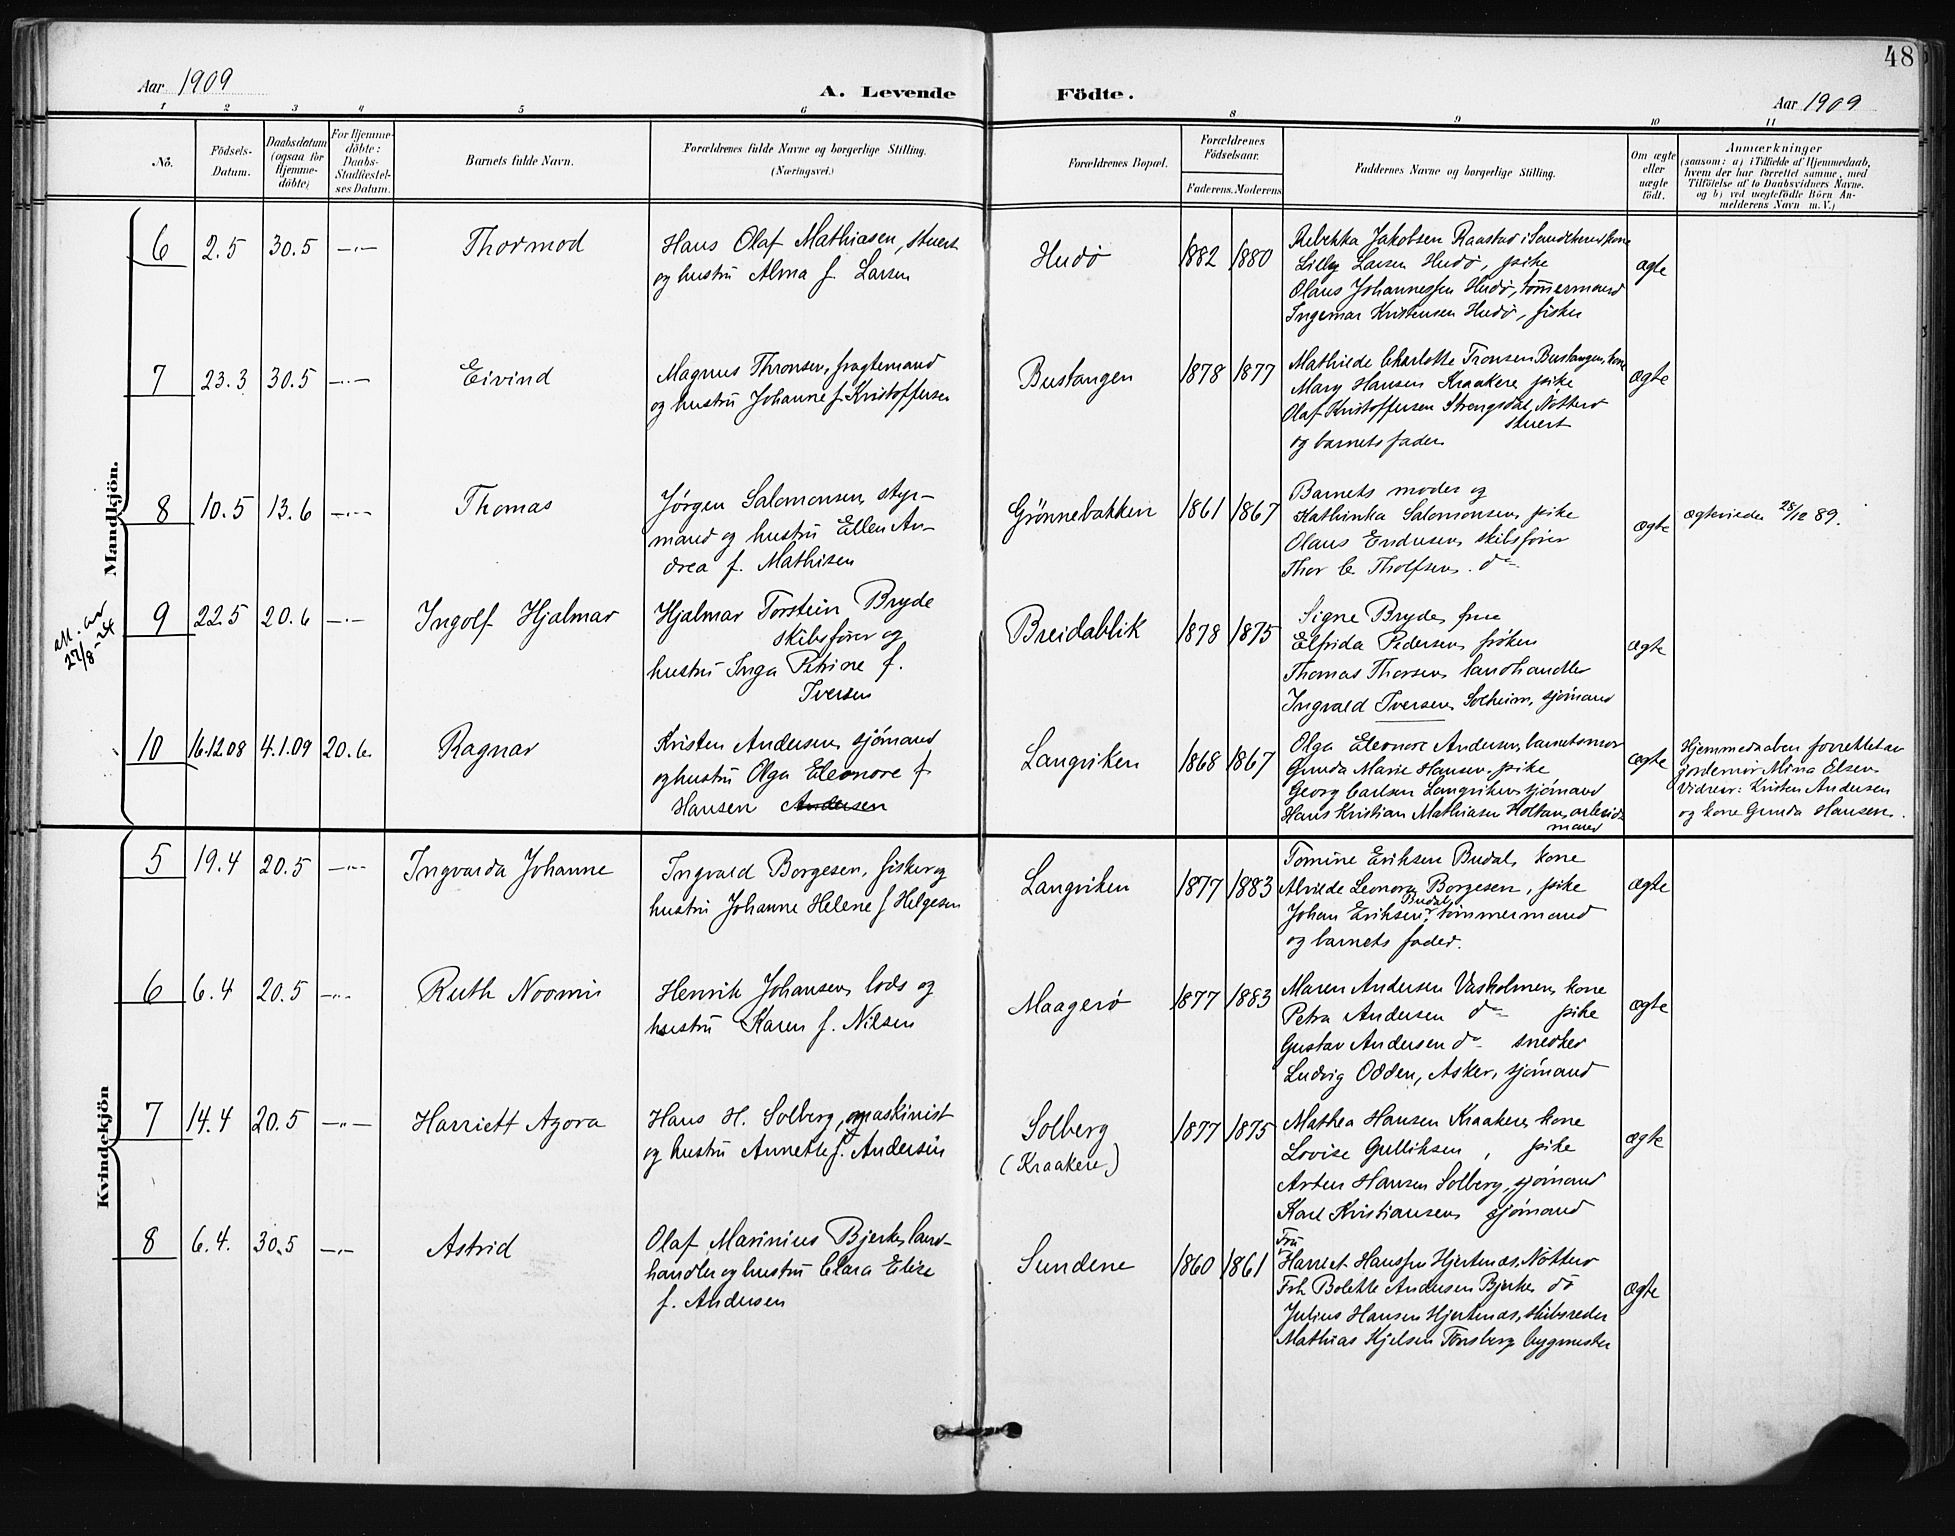 48
Aar 1909
A. Levende Födte.
Aar 1909
1 2 3 4 5 6 8 9 10 11
No.
Födsels-
Datum.
Daabsdatum
(ogsaa for
Hjemme-
döbte)
For Hjemme-
döbte:
Daabs-
Stadfæstel-
ses Datum.
Barnets fulde Navn.
Forældrenes fulde Navne og borgerlige Stilling.
(Næringsvei.)
Forældrenes Bopæl.
Forældrenes
Födselsaar.
Faderens. Moderens
Faddernes Navne og borgerlige Stilling.
Om ægte
eller
uægte
födt.
Anmærkninger
(saasom: a) i Tilfælde af Hjemmedaab,
hvem der har forrettet samme, med
Tilföielse af to Daabsvidners Navne.
og b) ved uægtefödte Börn An-
melderens Navn m. V.)
Mandkjön.
6 2.5 30.5 —"— Thormod
Hans Olaf Mathiasen, stuert
og hustru Alma f. Larsen
Hudø
1882 1880
Rebekka Jakobsen Raastad i Sandeherred kone
Lilly Larsen Hudø, pike
Olaus Johannessen Hudø, tømmermand
Ingemar Kristensen Hudø, fisker
ægte
7 23.3 30.5 —"— Eivind
Magnus Thronsen, fragtemand
og hustru Johanne f. Kristoffersen
Bustangen
1878 1877
Mathilde Charlotte Tronsen Bustangen, kone
Mary Hansen Kraakere pike
Olaf Kristoffersen Strengsdal, Nøtterø
stuert
og barnets fader
ægte
8 10.5 13.6 —"— Thomas
Jørgen Salomonsen, styr-
mand og hustru Ellen An-
drea f. Mathisen
Grønnebakken
1861 1867
Barnets moder og
Kathinka Salomonsen, pike
Olaus Endresen, skibsfører
Thor C. Tholfsen. do
ægte
ægteviede 28/12 89.
att. av
27/8-24
9 22.5 20.6 —"— Ingolf Hjalmar
Hjalmar Torstein Bryde
skibsfører og
hustru Inga Petrine f.
Iversen
Breidablik
1878 1875
Signe Bryde, frue
Elfrida Pedersen, frøken
Thomas Thorsen, landhandler
Ingvald Iversen, Solheim, sjømand
ægte
10 16.12.08 4.1.09 20.6 Ragnar
Kristen Andersen, sjømand
og hustru Olga Eleonore f.
Hansen Andersen
Langviken
1868 1867
Olga Eleonore Andersen, barnets mor
Gunda Marie Hansen, pike
Georg Carlsen Langviken, sjømand
Hans Kristian Mathiasen Holtan, arbeids-
mand
ægte
Hjemmedaaben forrettet av
jordemor Mina Elsen.
Vidner: Kristen Andersen
og kone Gunda Hansen.
Kvindekjön
5 19.4 20.5 —"— Ingvarda Johanne
Ingvald Borgesen, fisker og
hustru Johanne Helene f. Helgesen
Langviken
1877 1883
Tomine Eriksen Budal, kone
Alvilde Leonora Borgesen, pike
Johan Eriksen, Budal, tømmermand
og barnets fader.
ægte
6 6.4 20.5 —"— Ruth Noomi
Henrik Johansen, lods og
hustru Karen f. Nilsen
Maagerø
1877 1883
Maren Andersen Vasholmen, kone
Petra Andersen do pike
Gustav Andersen do snedker
Ludvig Odden, Asker, sjømand
ægte
7 14.4 20.5 —"— Harriett Azora
Hans H. Solberg, maskinist
og hustru Annette f. Andersen
Solberg
(Kraakere)
1877 1875
Mathea Hansen Kraakere, kone
Lovise Gulliksen, pike
Anten Hansen Solberg, sjømand
Karl Kristiansen sjømand
ægte
8 6.4. 30.5 —"— Astrid
Olaf Marinius Bjerke, land-
handler og hustru Clara Elise
f. Andersen
Sundene
1860 1861
Fru
Harriet Hanssen Hjertnæs, Nøtterø
Frk Bolette Andersen Bjerke do
Julius Hansen Hjertnæs, skibsreder
Mathias Kjelsen Tønsberg, bygmester
ægte